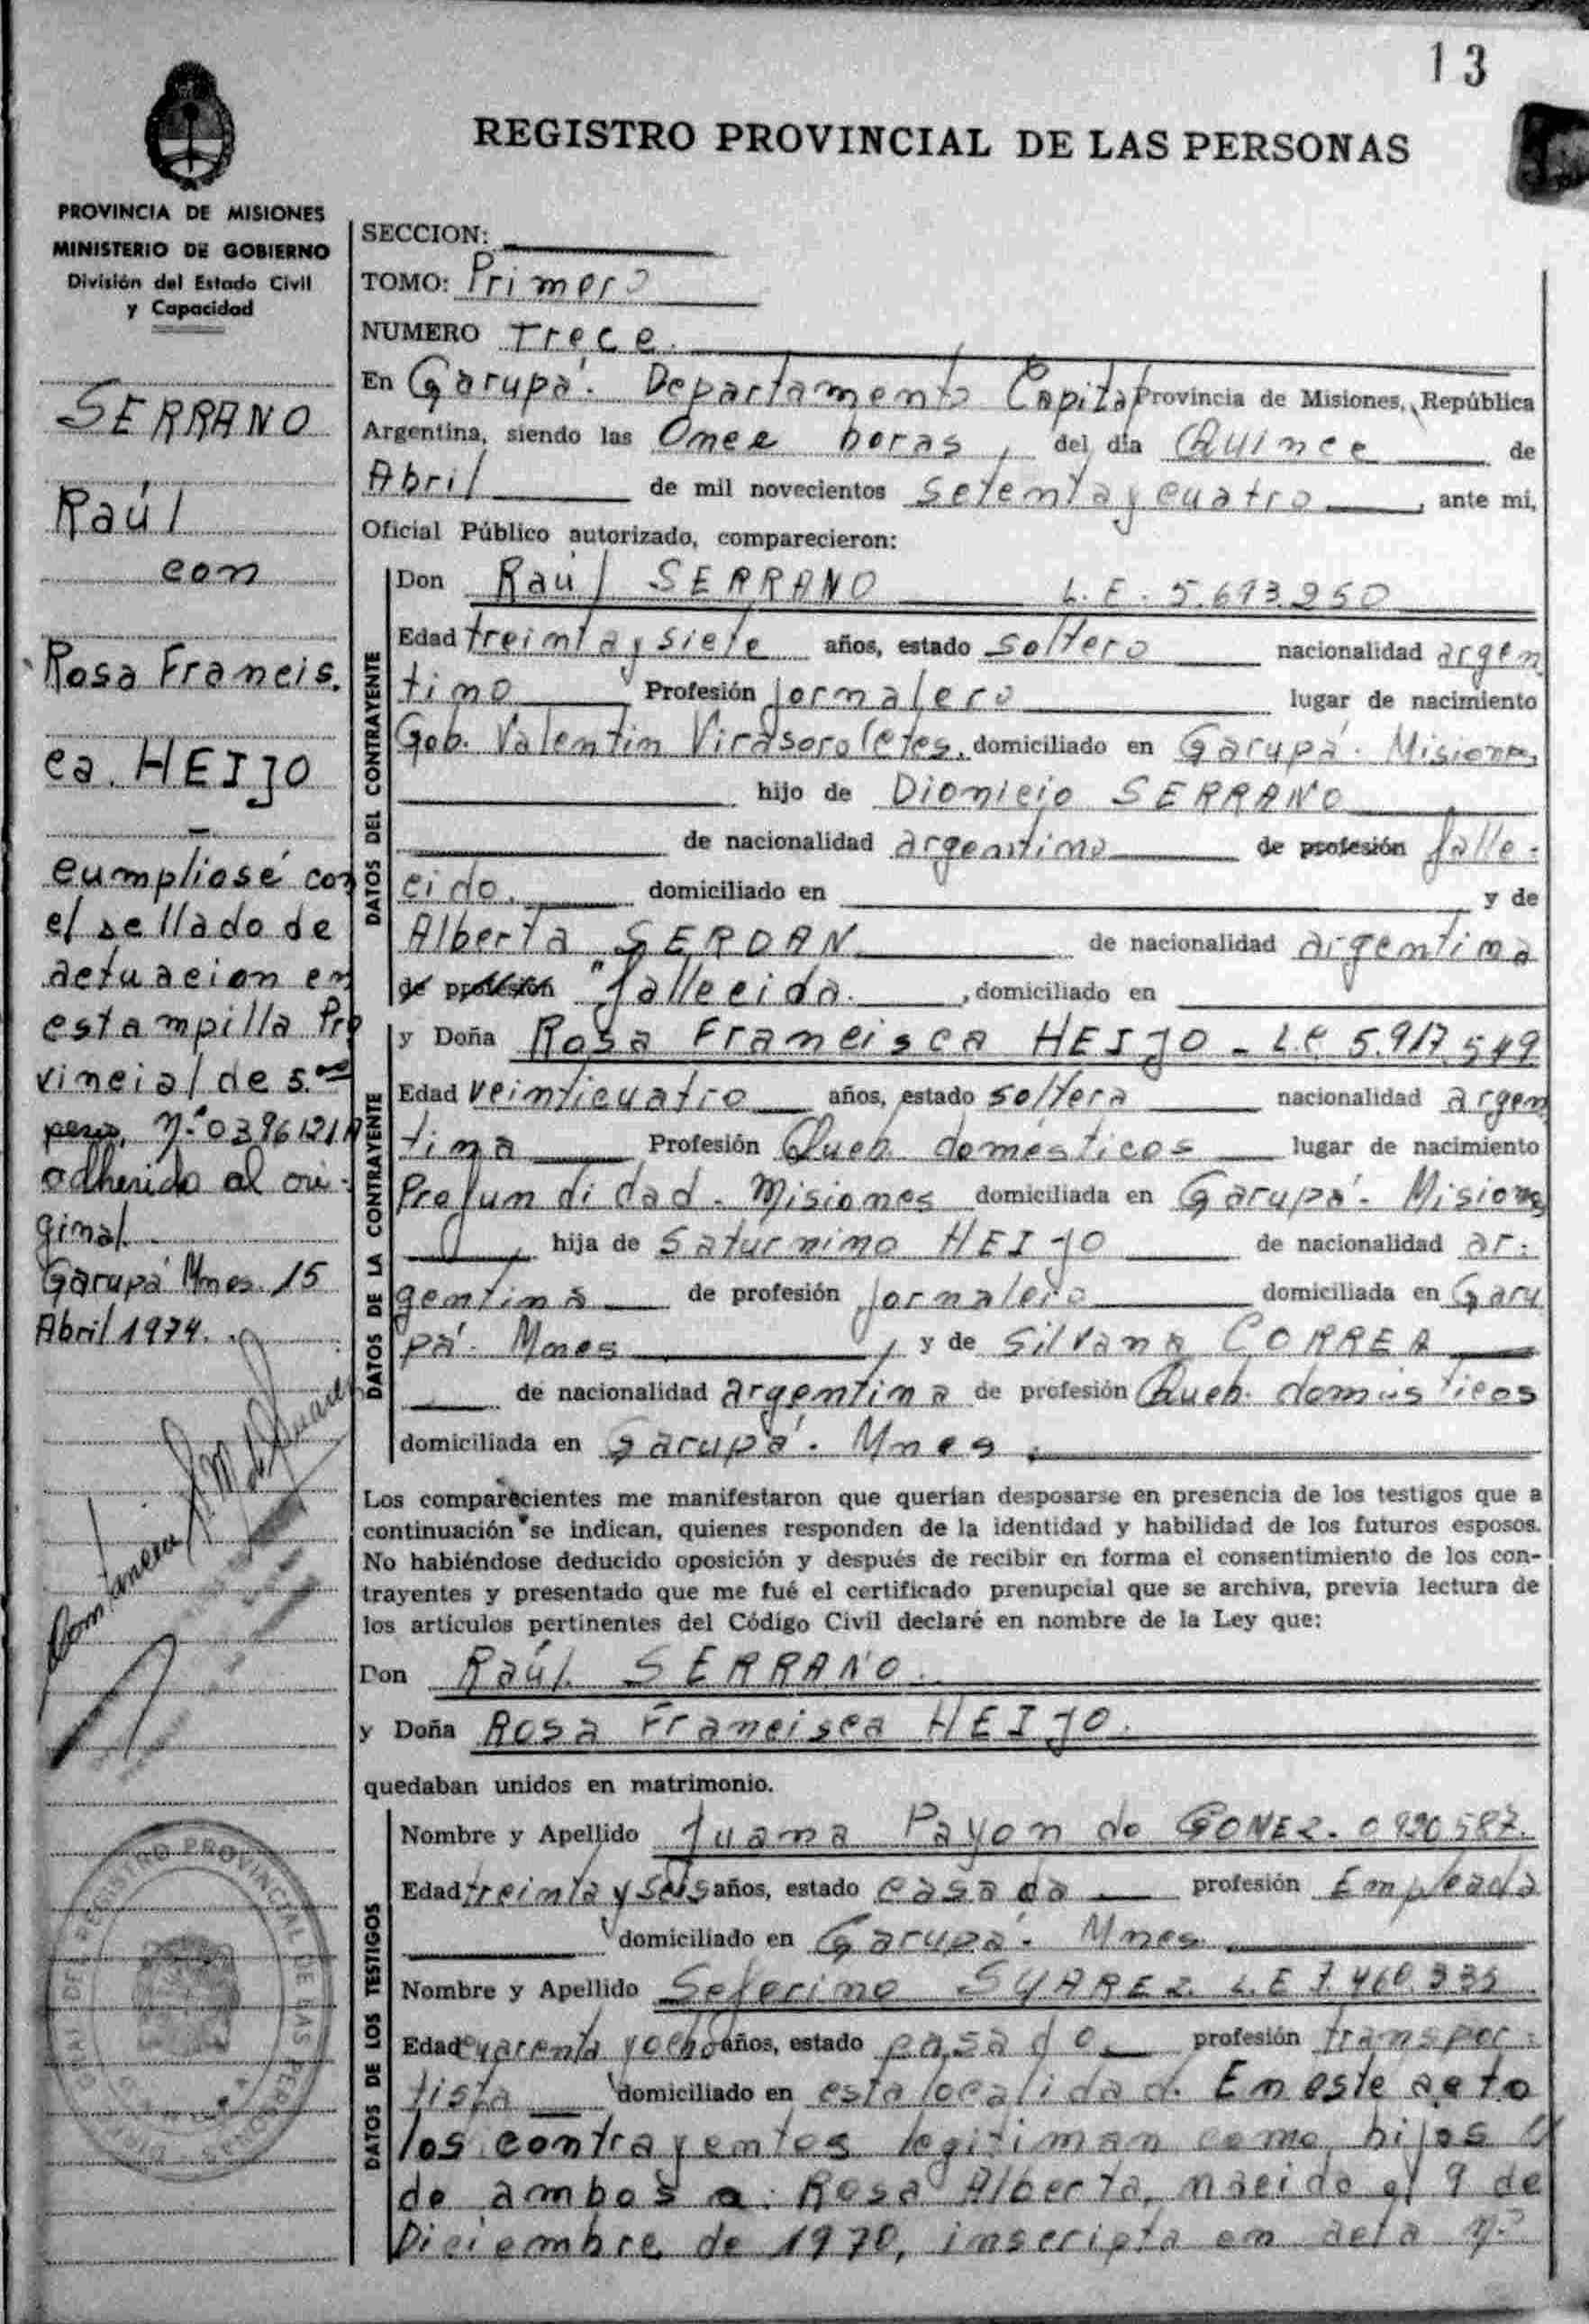 13
REGISTRO PROVINCIAL DE LAS PERSONAS
PROVINCIA DE MISIONES
MINISTERIO DE GOBIERNO
División del Estado Civil
y Capacidad
SERRANO
Raúl
con
Rosa Francis.
ca. HEIJO
cumpliosé con
el sellado de
actuacion en
estampilla Pro
vincial de 5.
pesos, n.º 0396121
adherido al ori-
ginal.
Garupá Mnes. 15
Abril 1974.
SECCION:
TOMO: Primero
NUMERO Trece.
En Garupá. Departamento Capital Provincia de Misiones, República
Argentina, siendo las Once horas, del día Quince de
Abril de mil novecientos setenta y cuatro, ante mi,
Oficial Público autorizado, comparecieron:
DATOS DEL CONTRAYENTE
Don Raúl SERRANO L.E. 5.693.950
Edad treinta y siete años, estado soltero nacionalidad argen
tino Profesión Jornalero lugar de nacimiento
Gob. Valentin Virasoro Ctes. domiciliado en Garupá. Misiones
hijo de Dionicio SERRANO
de nacionalidad argentino de profesión falle-
cido. domiciliado en y de
Alberta SERDAN de nacionalidad argentina
de profesión fallecida. , domiciliado en
DATOS DE LA CONTRAYENTE
y Doña Rosa Francisca HEIJO - L.C 5.917.549
Edad veinticuatro años, estado soltera nacionalidad argen
tina Profesión Queh. domésticos lugar de nacimiento
Profundidad - Misiones domiciliada en Garupá - Misiones
hija de Saturnino HEIJO de nacionalidad ar-
gentina de profesión Jornalero domiciliada en Garu
pá. Mnes , y de Silvana CORREA
de nacionalidad argentina de profesión Queh. domésticos
domiciliada en Garupá. Mnes.
Los comparecientes me manifestaron que querían desposarse en presencia de los testigos que a
continuación se indican, quienes responden de la identidad y habilidad de los futuros esposos.
No habiéndose deducido oposición y después de recibir en forma el consentimiento de los con-
trayentes y presentado que me fué el certificado prenupcial que se archiva, previa lectura de
los artículos pertinentes del Código Civil declaré en nombre de la Ley que:
Don Raúl SERRANO.
y Doña Rosa Francisca HEIJO.
quedaban unidos en matrimonio.
DATOS DE LOS TESTIGOS
Nombre y Apellido Juana Payon de GOMEZ.
Edad treinta y seis años, estado casada profesión Empleada
domiciliado en Garupá. Mnes
Nombre y Apellido Seferino SUAREZ. L.E
Edad cuarenta y ocho años, estado casado profesión transpor-
tista domiciliado en esta localidad. En este acto
los contrayentes legitiman como hijos
de ambos a: Rosa Alberta, nacida el 9 de
Diciembre de 1970, inscripta en acta n.º
REGISTRO PROVINCIAL DE LAS PERSONAS